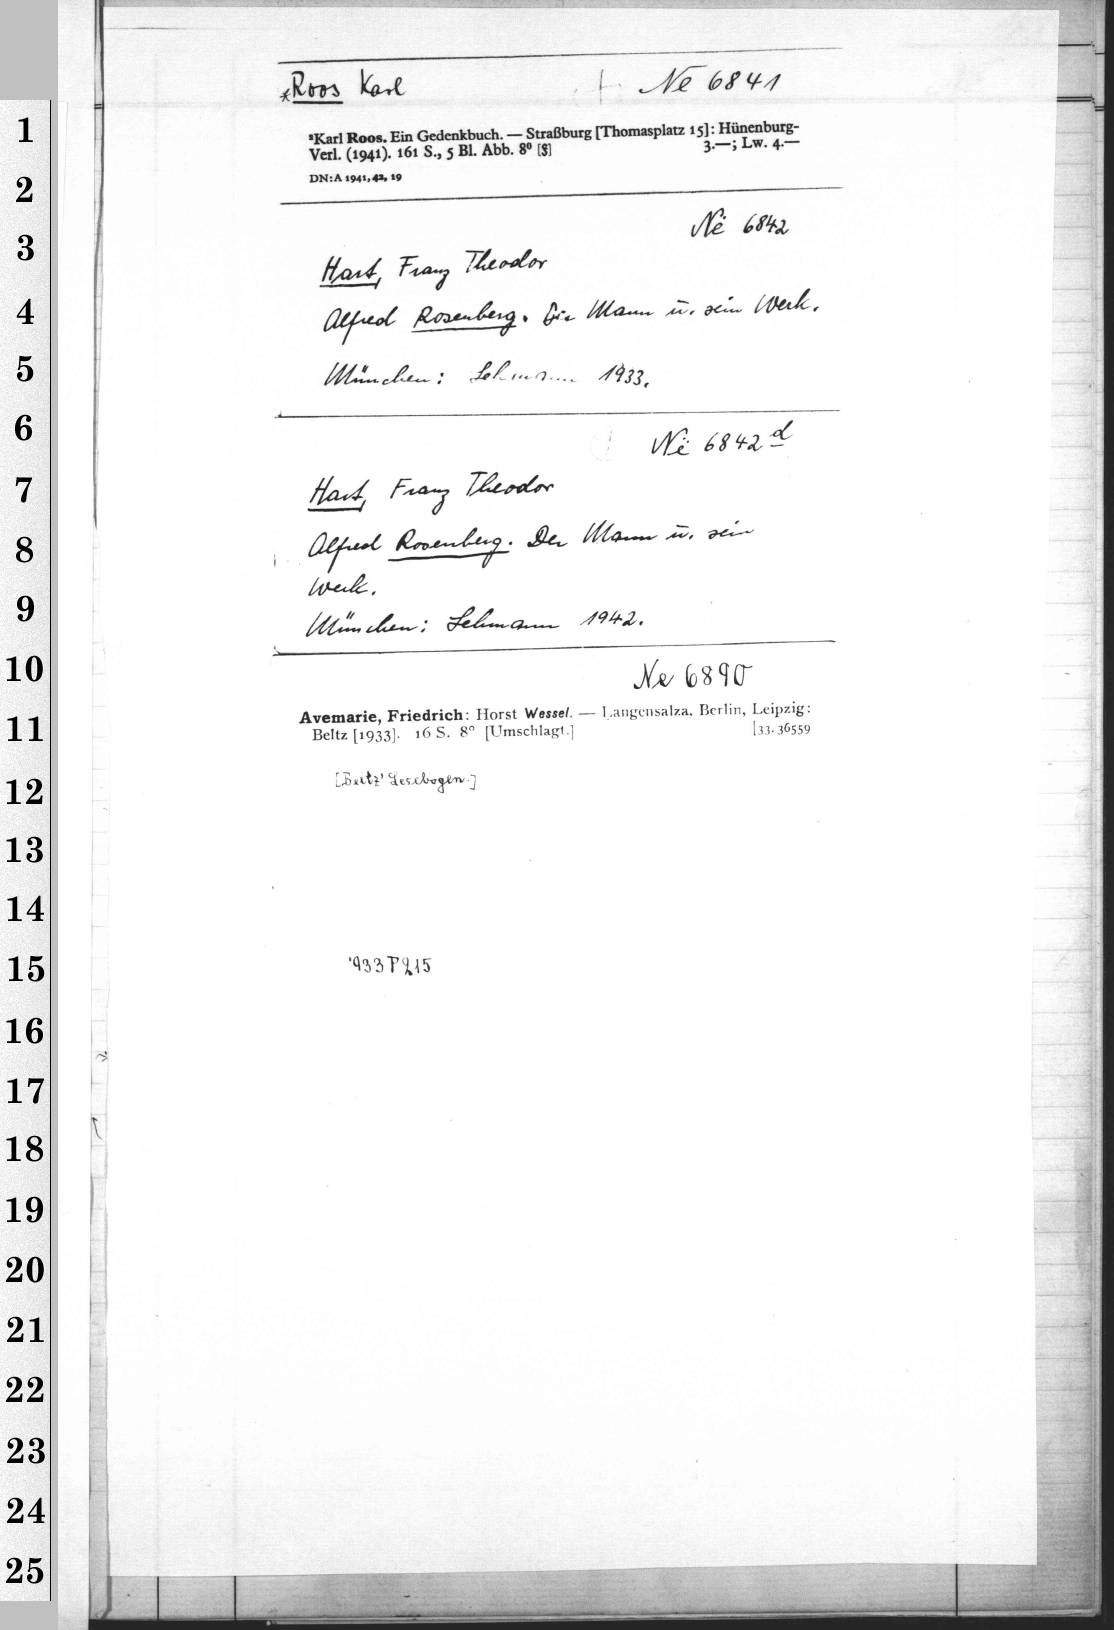 1
2
3
4
5
6
7
8
9
10
11
12
13
14
15
16
17
18
19
20
21
22
23
24
25
*Roos Karl Ne 6841
*Karl Roos. Ein Gedenkbuch. — Straßburg [Thomasplatz 15]: Hünenburg-
Verl. (1941). 161 S., 5 Bl. Abb. 8° [$] 3.—; Lw. 4.—
DN: A 1941, 42, 19
Në 6842
Hart, Franz Theodor
Alfred Rosenberg. Der Mann u. sein Werk.
München: Lehmann 1933.
Në 6842 d
Hart, Franz Theodor
Alfred Rosenberg. Der Mann u. sein
Werk.
München: Lehmann 1942.
Ne 6890
Avemarie, Friedrich: Horst Wessel. — Langensalza, Berlin, Leipzig:
Beltz [1933]. 16 S. 8° [Umschlagt.] [33. 36559
[Beltz' Lesebogen.]
'933 P 215